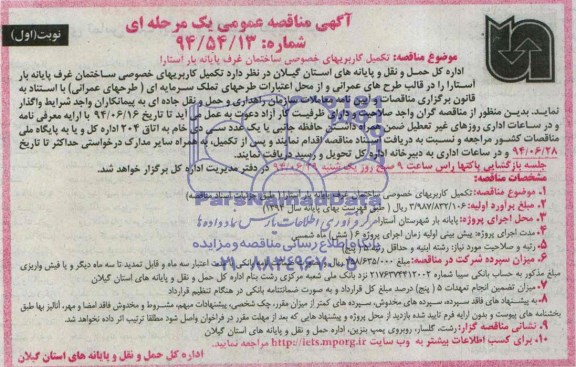 آگهی مناقصه عمومی یک مرحله ای
شماره: ۹۴/۵۴/۱۳
نوبت(اول)
موضوع مناقصه: تکمیل کاربریهای خصوصی ساختمان غرف پایانه بار آستارا
اداره کل حمل و نقل و پایانه های استان گیلان در نظر دارد تکمیل کاربریهای خصوصی ساختمان غرف پایانه بار
آستارا را در قالب طرح های عمرانی و از محل اعتبارات طرحهای تملک سرمایه ای (طرحهای عمرانی) با استناد به
قانون برگزاری مناقصات و آیین نامه معاملات سازمان راهداری و حمل و نقل جاده ای به پیمانکاران واجد شرایط واگذار
نماید. بدین منظور از مناقصه گران واجد صلاحیت و دارای ظرفیت کار آزاد دعوت به عمل می آید تا تاریخ ۹۴/۰۶/۱۶ با ارایه معرفی نامه
و در ساعات اداری روزهای غیر تعطیل ضمن همراه داشتن حافظه جانبی یا یک عدد سی دی خام به اتاق ۲۰۴ اداره کل و یا به پایگاه ملی
مناقصات کشور مراجعه و نسبت به دریافت اسناد مناقصه اقدام نمایند و پس از تکمیل، به همراه سایر مدارک درخواستی حداکثر تا تاریخ
۹۴/۰۶/۲۸ و در ساعات اداری به دبیرخانه اداره کل تحویل و رسید دریافت نمایند.
جلسه بازگشایی پاکتها راس ساعت ۹ صبح روز یک شنبه ۹۴/۰۶/۲۹ در دفتر مدیریت اداره کل برگزار خواهد شد.
مشخصات مناقصه:
۱. موضوع مناقصه: تکمیل کاربریهای خصوصی ساختمان غرف پایانه بار آستارا (طبق جزئیات اسناد مناقصه)
۲. مبلغ برآورد اولیه: ۳/۹۸۷/۸۳۲/۱۰۶ ریال (طبق فهرست بهای پایه سال ۱۳۹۴)
۳. محل اجرای پروژه: پایانه بار شهرستان آستارا
۴. مدت اجرای پروژه: پیش بینی اولیه زمان اجرای پروژه ۶ (شش) ماه شمسی
۵. رتبه و صلاحیت مورد نیاز: رشته ابنیه و حداقل رتبه ۵ (پنج)
۶. میزان سپرده شرکت در مناقصه: مبلغ ریال
مبلغ مذکور به حساب بانکی سیبا شماره ۲۱۷۶۳۷۴۴۱۲۰۰۲ نزد بانک ملی شعبه مرکزی رشت بنام اداره کل حمل و نقل و پایانه های استان گیلان
۷. میزان تضمین انجام تعهدات ۵ (پنج) درصد مبلغ کل قرارداد و به صورت ضمانتنامه بانکی در هنگام تنظیم قرارداد
۸. به پیشنهادهای فاقد سپرده، سپرده های مخدوش، سپرده های کمتر از میزان مقرر، چک شخصی، پیشنهادات مبهم، مشروط و مخدوش فاقد امضا و مهر، آنالیز بها طبق
بخشنامه های پیوست و بدون ارایه فرم تایید شده بازدید از محل پروژه و پیشنهاد هایی که بعد از مهلت مقرر در فراخوان واصل شود مطلقا ترتیب اثر داده نخواهد شد.
۹. نشانی مناقصه گزار: رشت، گلسار، روبروی پمپ بنزین، اداره حمل و نقل و پایانه های استان گیلان
۱۰. برای کسب اطلاعات بیشتر به وب سایت http://iets.mporg.ir مراجعه نمایید.
اداره کل حمل و نقل و پایانه های استان گیلان
ParsNamadData
گردآوری اطلاعات پارس نماد داده ها
پایگاه اطلاع رسانی مناقصه و مزایده